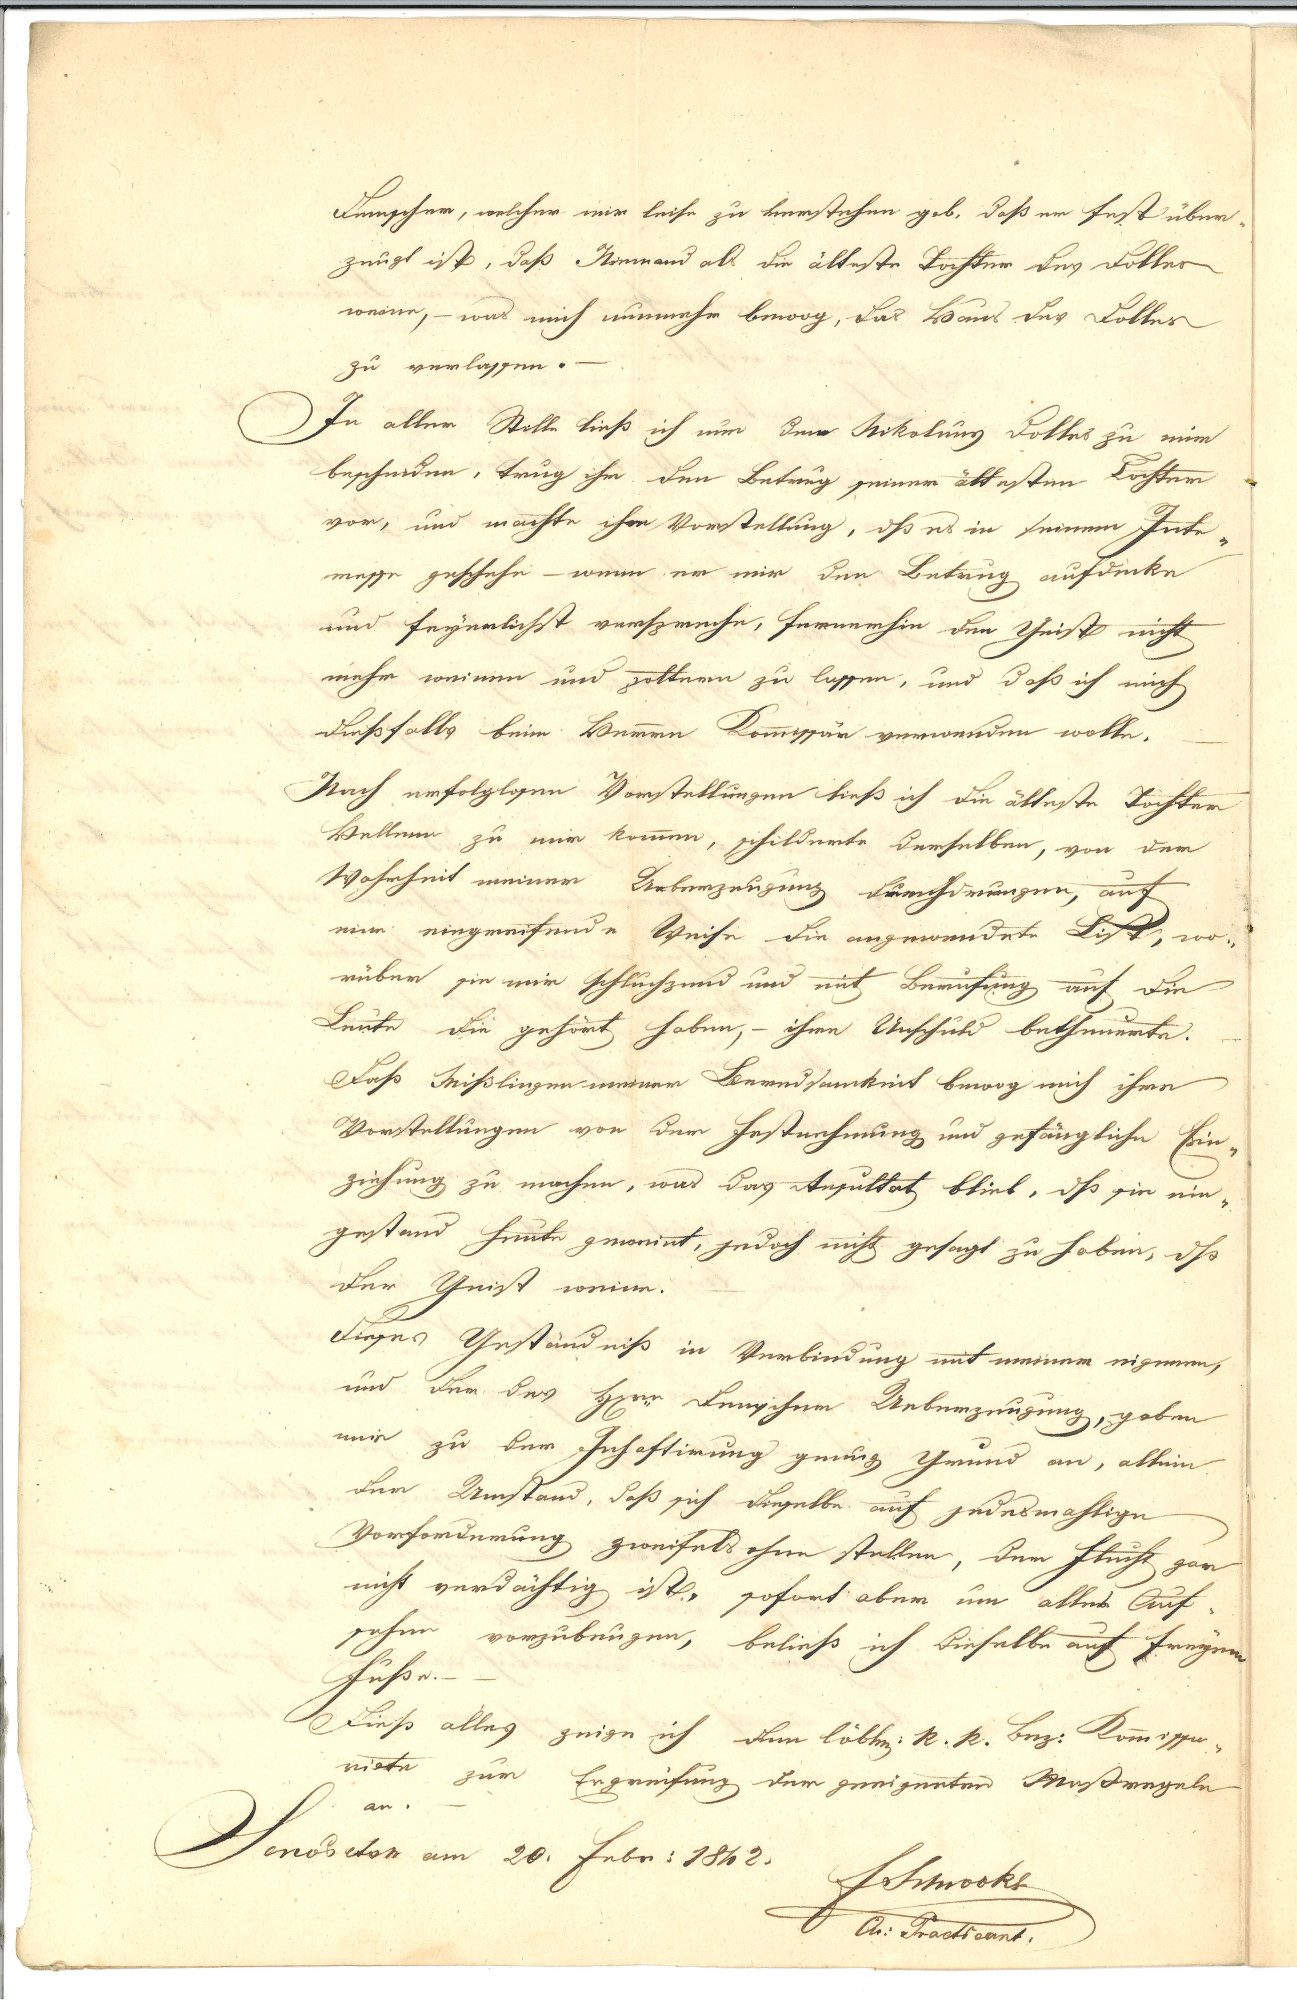 Demscher, welcher mir leise zu verstehen gab, daß er fest über„
zeugt ist, daß Niemand als die älteste Tochter des Dolles
weine, – was mich nunmehr bewog, das Haus des Dolles
zu verlassen. –
In aller Stille ließ ich nun den Nikolaus Dolles zu mir
bescheiden, trug ihm den Betrug seiner ältesten Tochter
vor, und machte ihm Vorstellung, dß es in seinem Inte„
resse geschehe – wenn er mir den Betrug aufdecke
und feyerlichst verspreche, fernerhin den Geist nicht
mehr weinen und poltern zu lassen, und daß ich mich
dießfalls beim Herrn Kommissär verwenden wolle. –
Nach erfolglosen Vorstellungen ließ ich die älteste Tochter
Hellena zu mir kommen, schilderte derselben, von der
Wahrheit meiner Ueberzeugung durchdrungen, auf
eine eingreifende Weise die angewendete List, wo„
rüber sie mir schluchzend und mit Berufung auf die
Leute die gehört haben, – ihre Unschuld betheuerte. –
Daß Mißlingen meiner Beredsamkeit bewog mich ihr
Vorstellungen von der Festnehmung und gefängliche Ein„
ziehung zu machen, was das Resultat blieb, dß sie ein„
gestand heute geweint, jedoch nicht gesagt zu haben, dß
der Geist weine. –
Dieses Geständniß in Verbindung mit meiner eigenen,
und der des Herrn Demscher Ueberzeugung, gaben
mir zu der Inhaftirung genug Grund an, allein
der Umstand, daß sich dieselbe auf jedesmahlige
Vorforderung zweifelsohne stellen, der Flucht gar
nicht verdächtig ist, sofort aber um alles Auf„
sehen vorzubeugen, beließ ich dieselbe auf freyem
Fuße. – –
Dieß alles zeige ich dem löbln: k. k. Bez: Kommissa„
riate zur Ergreifung der geeigneten Maßregeln
an. –
am 20. Febr: 1842.
Practicant.